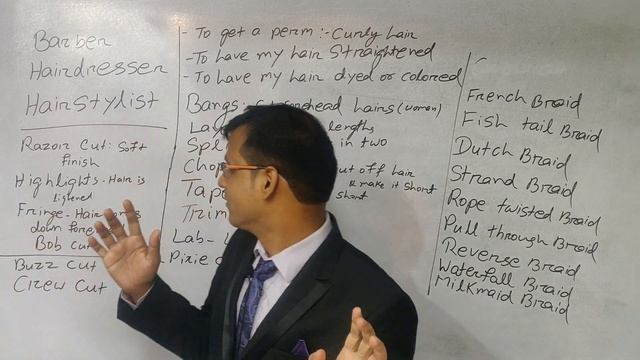 Barber
Hairdresser
Hairstylist
Razor Cut: Soft
finish
Highlights - Hair is
Fringe - Hair
down
Bob cut
Buzz Cut
Crew Cut
- To get a perm :- Curly hair
- To have my hair straightened
- To have my hair dyed or colored
Bangs: hairs (women)
lengths
in two
Chop
off hair
& make it short
short
Trim
Lab-
Pixie
French Braid
Fish tail Braid
Dutch Braid
Strand Braid
Rope twisted Braid
Pull through Braid
Reverse Braid
Waterfall Braid
Milkmaid Braid